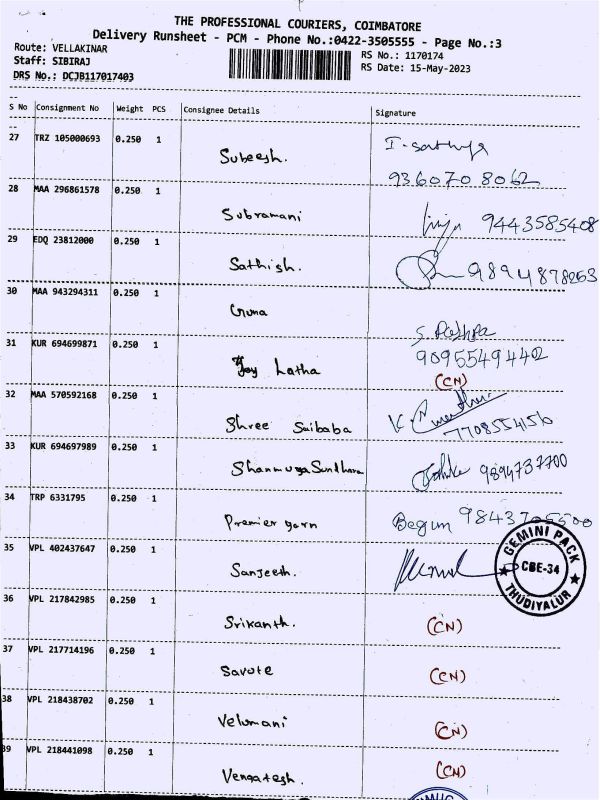 THE PROFESSIONAL COURIERS, COIMBATORE
Delivery Runsheet - PCM - Phone No.:0422-3505555 - Page No.:3
Route: VELLAKINAR
RS No.: 1170174
Staff: SIBIRAJ
RS Date: 15-May-2023
DRS No.: DCJB117017403
S No Consignment No Weight PCS Consignee Details Signature
27 TRZ 105000693 0.250 1 Subeesh.
9360708062
28 MAA 296861578 0.250 1 Subramani 9443585408
29 EDQ 23812000 0.250 1 Sathish. 9894878263
30 MAA 943294311 0.250 1 Guna
31 KUR 694699871 0.250 1 Joy Latha 9095549442
(CN)
32 MAA 570592168 0.250 1 Shree Saibaba 7708554156
33 KUR 694697989 0.250 1 ShanmugaSundhara 9894737700
34 TRP 6331795 0.250 1 Premier yarn Begum 9843705500
35 VPL 402437647 0.250 1 Sanjeeth.
GEMINI PACK
CBE-34
THUDIYALUR
36 VPL 217842985 0.250 1 Srikanth. (CN)
37 VPL 217714196 0.250 1 Savote (CN)
38 VPL 218438702 0.250 1 Velumani (CN)
39 VPL 218441098 0.250 1 Vengatesh. (CN)